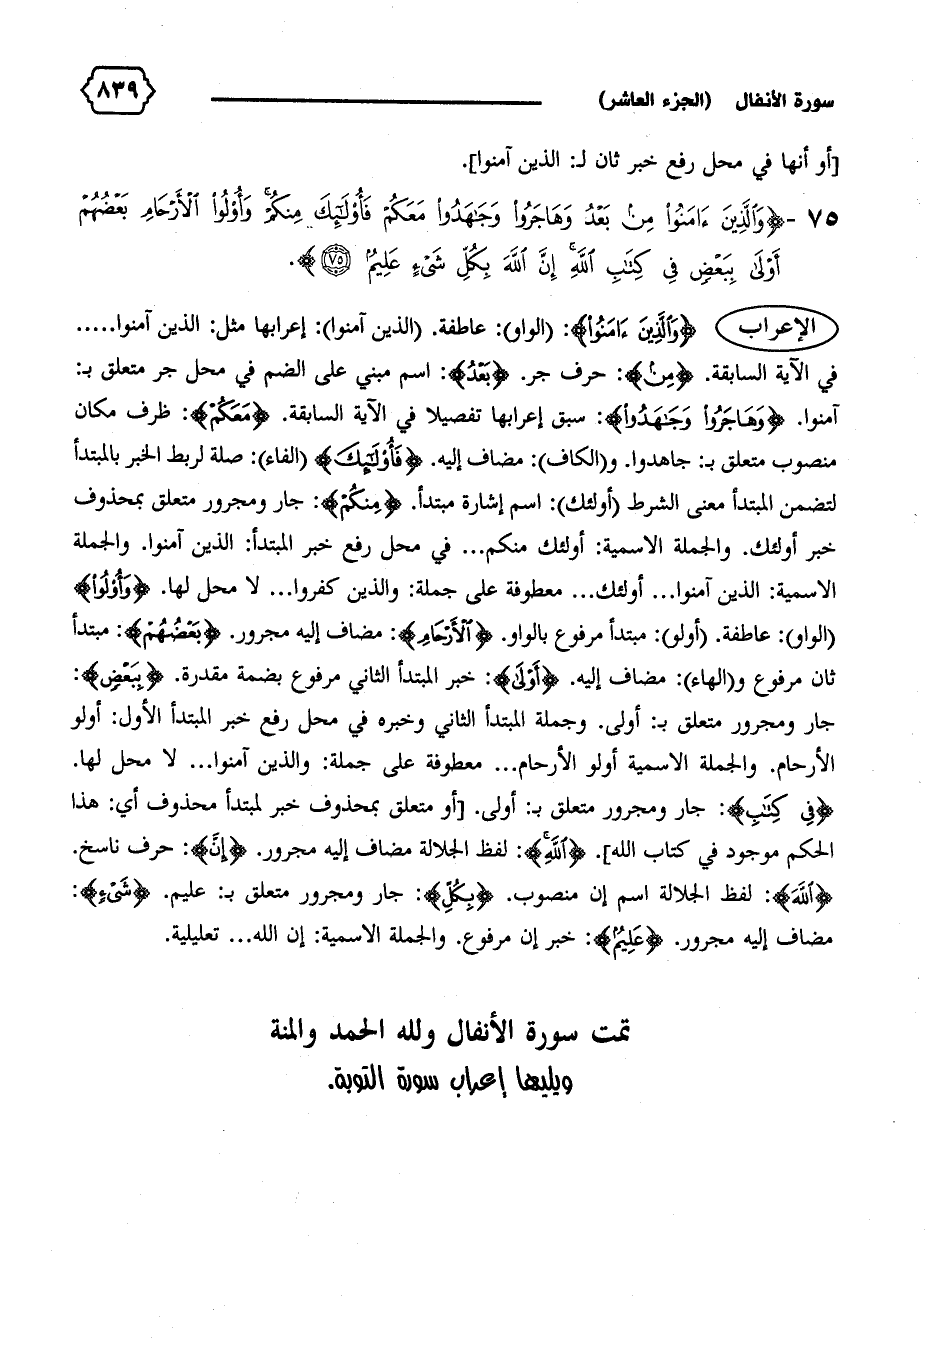 سورة الأنفال (الجزء العاشر) ٨٣٩
[أو أنها في محل رفع خبر ثان لـ: الذين آمنوا].
٧٥ -﴿وَٱلَّذِينَ ءَامَنُوا۟ مِنۢ بَعْدُ وَهَاجَرُوا۟ وَجَـٰهَدُوا۟ مَعَكُمْ فَأُو۟لَـٰٓئِكَ مِنكُمْ ۚ وَأُو۟لُوا۟ ٱلْأَرْحَامِ بَعْضُهُمْ
أَوْلَىٰ بِبَعْضٍ فِى كِتَـٰبِ ٱللَّهِ ۗ إِنَّ ٱللَّهَ بِكُلِّ شَىْءٍ عَلِيمٌۢ ٧٥﴾.
الإعراب ﴿وَٱلَّذِينَ ءَامَنُوا۟﴾: (الواو): عاطفة. (الذين آمنوا): إعرابها مثل: الذين آمنوا.....
في الآية السابقة. ﴿مِنۢ﴾: حرف جر. ﴿بَعْدُ﴾: اسم مبني على الضم في محل جر متعلق بـ:
آمنوا. ﴿وَهَاجَرُوا۟ وَجَـٰهَدُوا۟﴾: سبق إعرابها تفصيلا في الآية السابقة. ﴿مَعَكُمْ﴾: ظرف مكان
منصوب متعلق بـ: جاهدوا. و(الكاف): مضاف إليه. ﴿فَأُو۟لَـٰٓئِكَ﴾ (الفاء): صلة لربط الخبر بالمبتدأ
لتضمن المبتدأ معنى الشرط (أولئك): اسم إشارة مبتدأ. ﴿مِنكُمْ﴾: جار ومجرور متعلق بمحذوف
خبر أولئك. والجملة الاسمية: أولئك منكم... في محل رفع خبر المبتدأ: الذين آمنوا. والجملة
الاسمية: الذين آمنوا... أولئك... معطوفة على جملة: والذين كفروا... لا محل لها. ﴿وَأُو۟لُوا۟﴾
(الواو): عاطفة. (أولو): مبتدأ مرفوع بالواو. ﴿ٱلْأَرْحَامِ﴾: مضاف إليه مجرور. ﴿بَعْضُهُمْ﴾: مبتدأ
ثان مرفوع و(الهاء): مضاف إليه. ﴿أَوْلَىٰ﴾: خبر المبتدأ الثاني مرفوع بضمة مقدرة. ﴿بِبَعْضٍ﴾:
جار ومجرور متعلق بـ: أولى. وجملة المبتدأ الثاني وخبره في محل رفع خبر المبتدأ الأول: أولو
الأرحام. والجملة الاسمية أولو الأرحام... معطوفة على جملة: والذين آمنوا... لا محل لها.
﴿فِى كِتَـٰبِ﴾: جار ومجرور متعلق بـ: أولى. [أو متعلق بمحذوف خبر لمبتدأ محذوف أي: هذا
الحكم موجود في كتاب الله]. ﴿ٱللَّهِ ۗ﴾: لفظ الجلالة مضاف إليه مجرور. ﴿إِنَّ﴾: حرف ناسخ.
﴿ٱللَّهَ﴾: لفظ الجلالة اسم إن منصوب. ﴿بِكُلِّ﴾: جار ومجرور متعلق بـ: عليم. ﴿شَىْءٍ﴾:
مضاف إليه مجرور. ﴿عَلِيمٌۢ﴾: خبر إن مرفوع. والجملة الاسمية: إن الله... تعليلية.
تمت سورة الأنفال ولله الحمد والمنة
ويليها إعراب سورة التوبة.